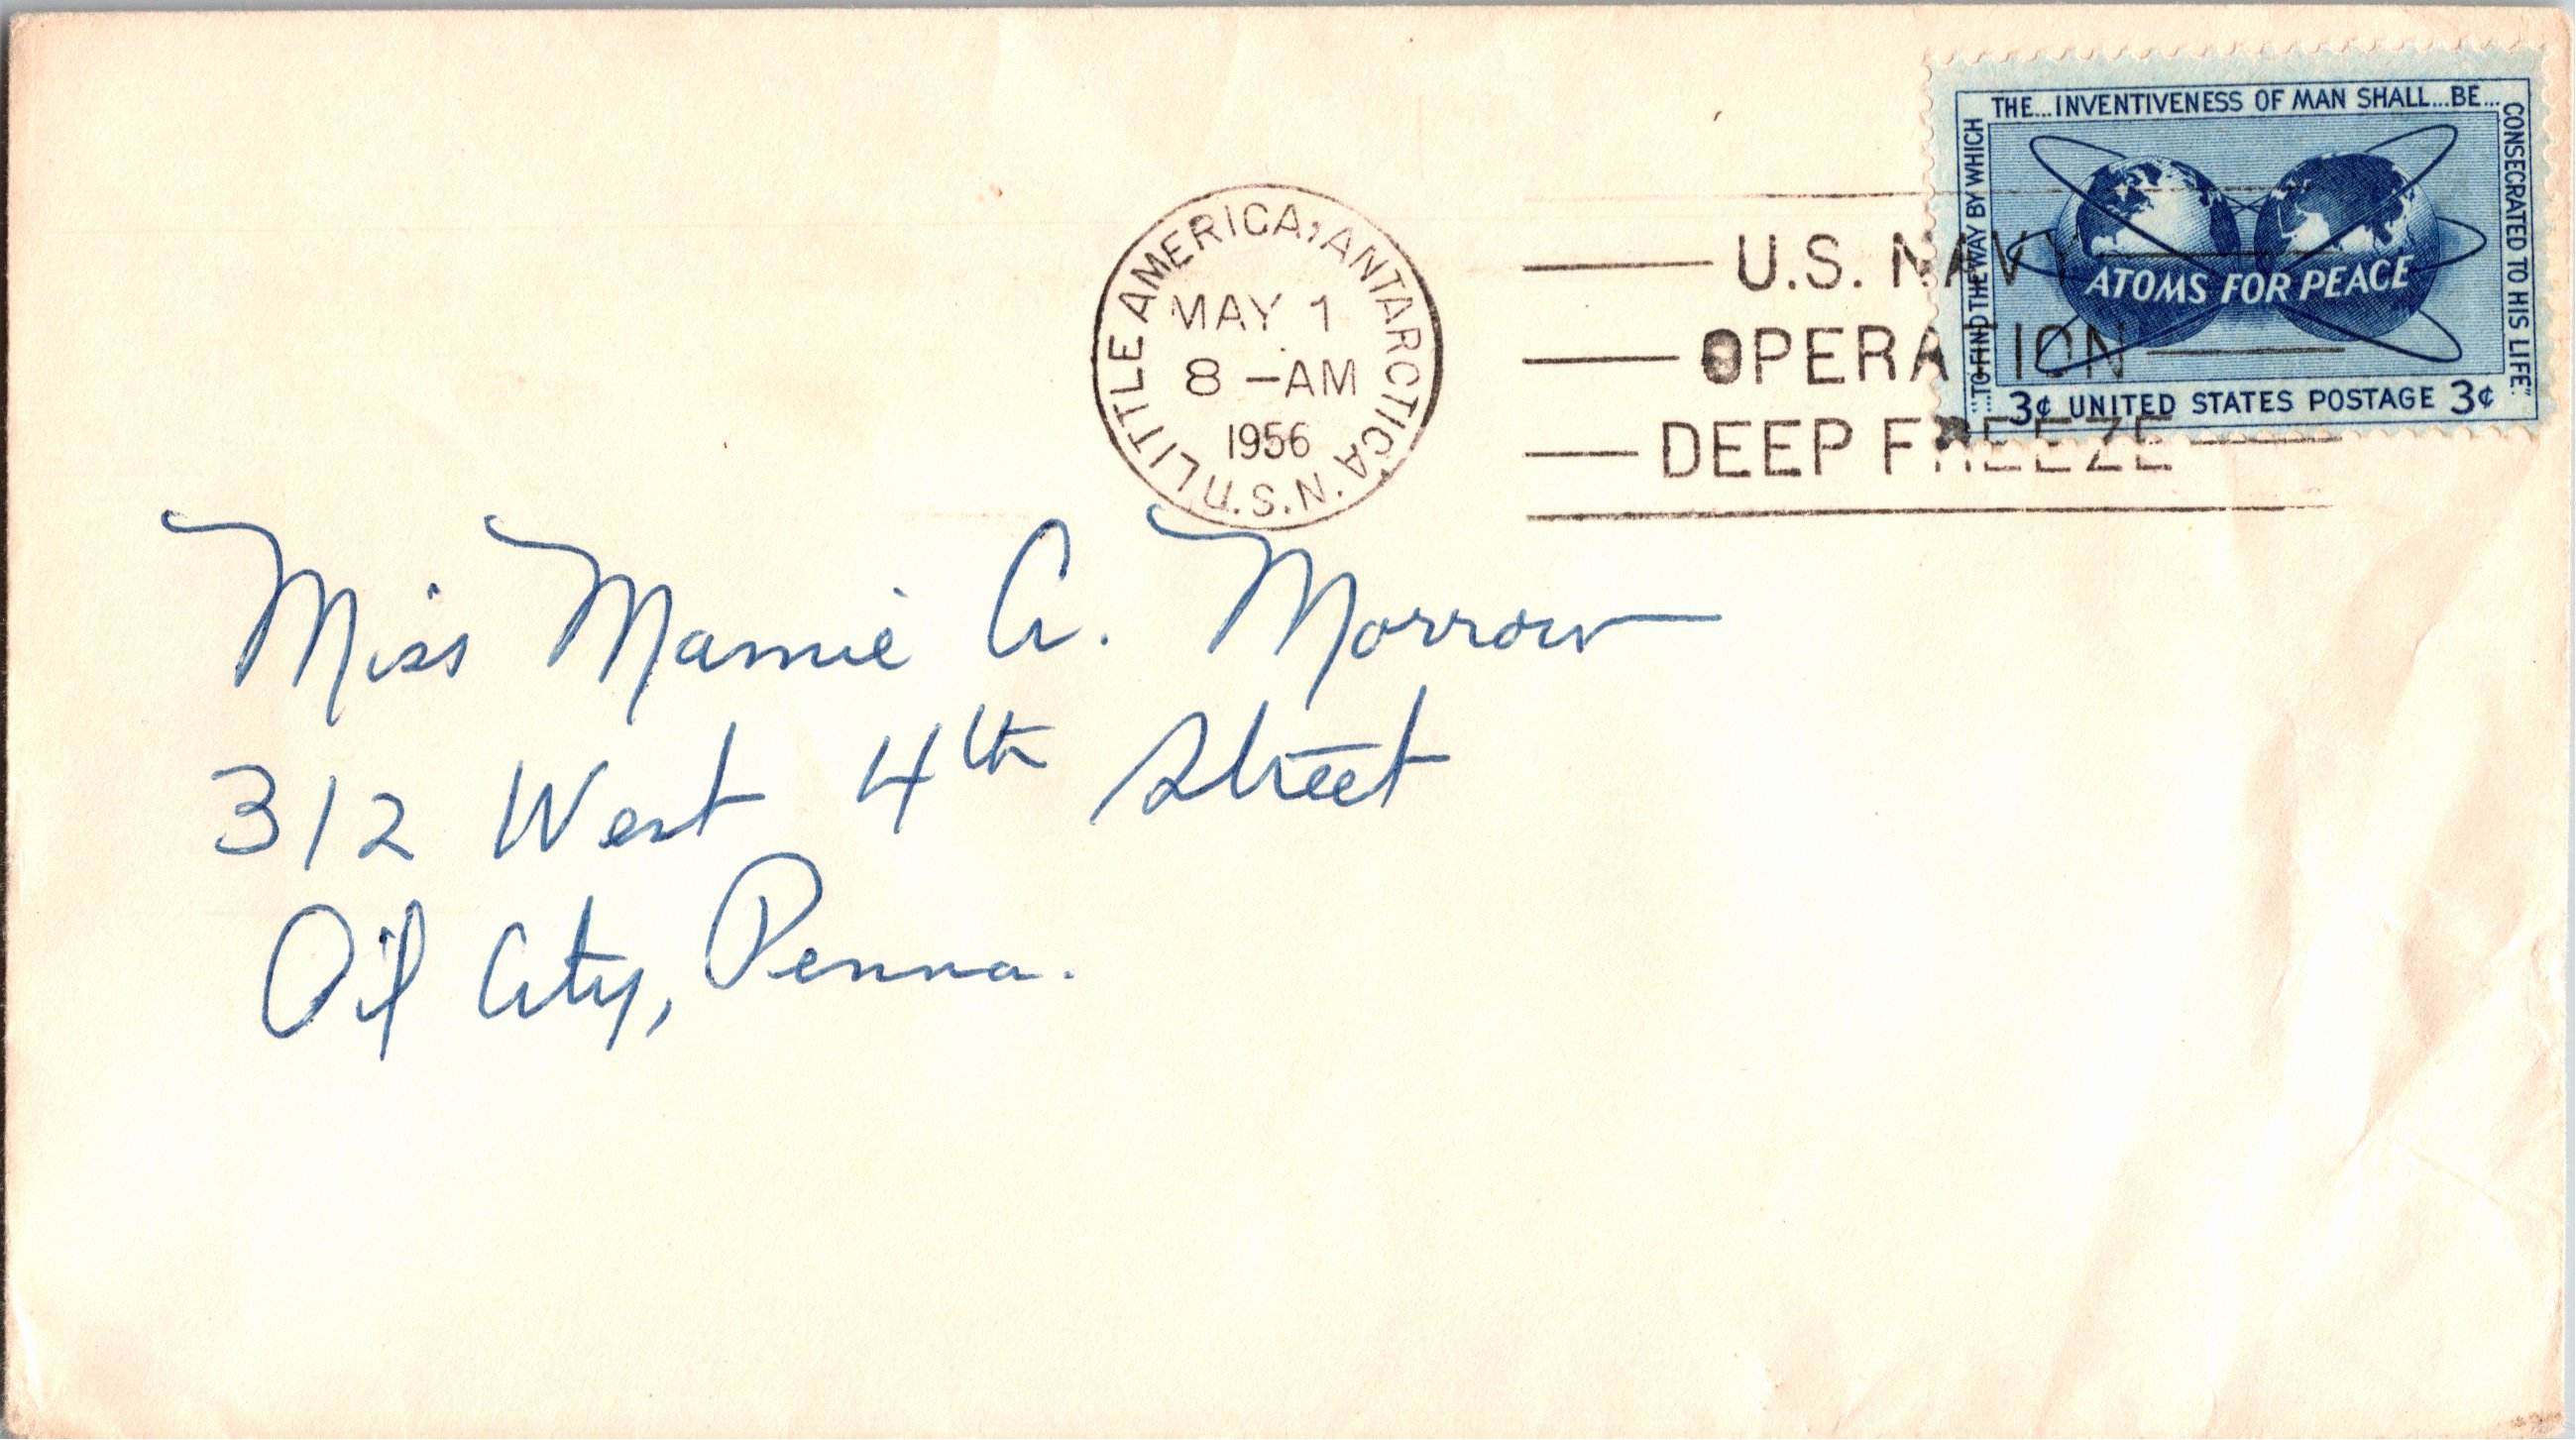 LITTLE AMERICA, ANTARCTICA
MAY 1
8 -AM
1956
U.S.N.
U.S. NAVY
OPERATION
DEEP FREEZE
"...TO FIND THE WAY BY WHICH
THE...INVENTIVENESS OF MAN SHALL...BE...
CONSECRATED TO HIS LIFE."
ATOMS FOR PEACE
3¢ UNITED STATES POSTAGE 3¢
Miss Mamie A. Morrow
312 West 4th Street
Oil City, Penna.